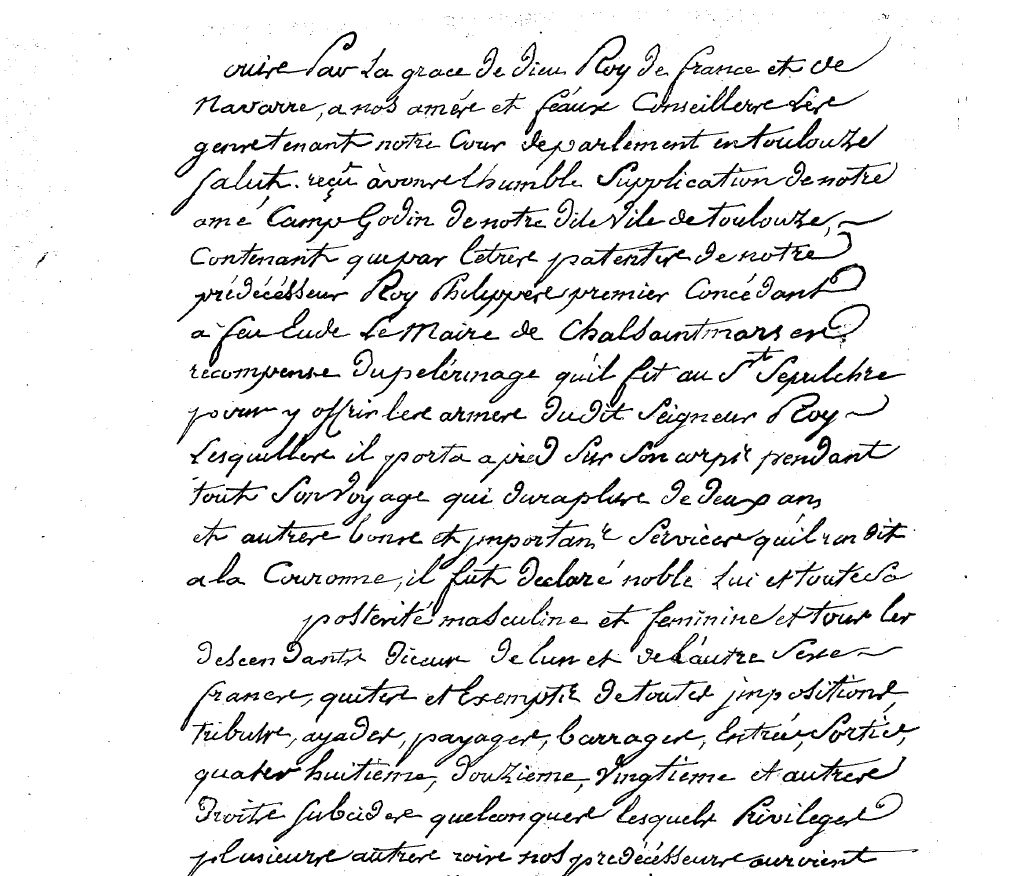 ouise Par La grace de dieu Roy de france et de
Navarre, a nos amés et féaux Conseillers Les
gens tenant notre Cour deparlement en toulouze
Salut. reçû àvons Lhumble Supplication de notre
amé Camp Godin de notre dite Vile de toulouze,
Contenant que par lettres patentes de notre
prédécésseur Roy Philippes premier Concédant
a feu Eude Le Maire de Chalsaintmars en
récompense du pelérinage qu'il fit au St. Sépulchre
pour y offrir les armes du dit Seigneur Roy
Lesquelles il porta a pied Sur Son corps pendant
tout Son Voyage qui dura plus de deux ans
et autres bons et jmportants Services qu'il rendit
a la Couronne, il fût declaré noble Lui et toute Sa
postérité masculine et feminine et tous les
descendants d'ieux de lun et de l'autre Sexe
francs, quites et Exempts de toutes jmpositions,
tributs, ayades, payages, barrages, Entrées, Sorties,
quater huitieme, douzieme, Vingtieme et autres
Droits Subcides quelconques lesquels Privileges
plusieurs autres rois nos predécésseurs auroient